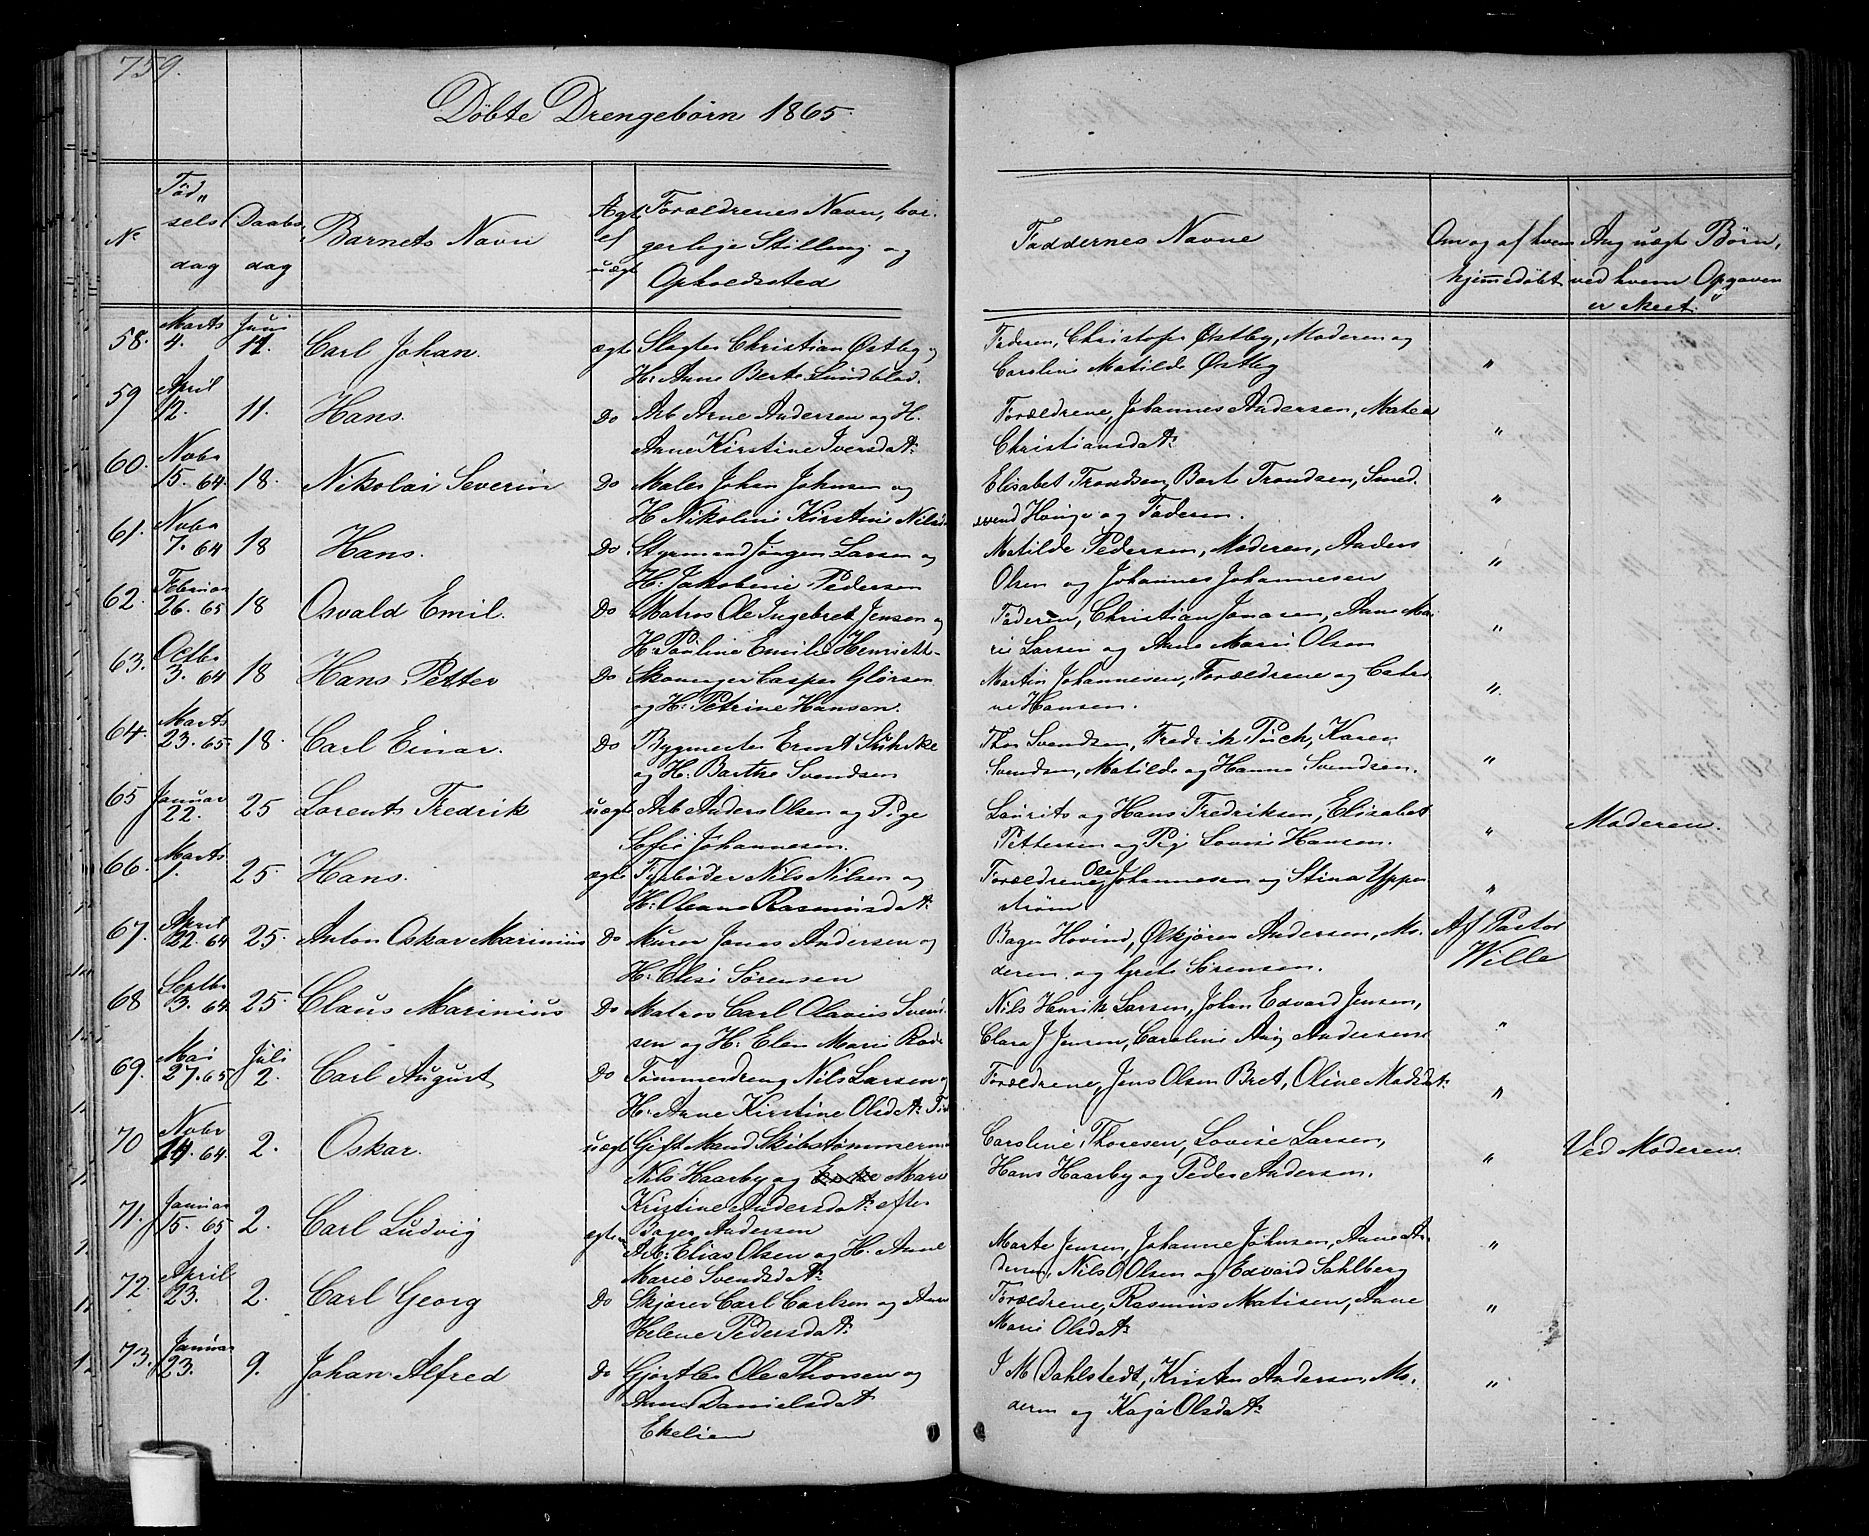 759.
Döbte Drengebørn 1865.
No
Föd„
sels
dag
Daabs
dag
Barnets Navn
Ægt
el
uægt
Forældrenes Navn, bor-
gerlige Stilling og
Opholdssted
Faddernes Navne
Om og af hvem
hjemmedøbt
Ang uægt Børn,
ved hvem Opgaven
er skeet.
58. Marts 4. Juni 11. Carl Johan. ægte Slagter Christian Østby og
H: Anne Berte Lundblad.
Faderen, Christofer Østby, Moderen og
Caroline Matilde Østby "
59 April 12. 11. Hans. Do Arb Arne Andersen og H.
Anne Kirstine Iversdat:
Forældrene, Johannes Andersen, Matea
Christiansdat: "
60. Novbr 15. 64. 18. Nikolai Severin Do Maler Johan Johnsen og
H Nikoline Kirstine Nilsd
Elisabet Trondsen, Bart Trondsen, Smed
svend Hauge og Faderen. "
61. Novbr 7. 64 18 Hans. Do Styrmand Jørgen Larsen og
H: Jakobine Pedersen
Matilde Pedersen, Moderen, Anders
Olsen og Johannes Johannesen "
62. Februar 26. 65 18 Osvald Emil. Do Matros Ole Ingebret Jensen og
H: Pauline Emilie Henriett-
Faderen, Christian Jonasen, Anne Ma-
rie Larsen og Anne Marie Olsen "
63. Octbr 3. 64 18 Hans Petter Do Skomager Casper Glörsen
og H: Petrine Hansen.
Martin Johannesen, Forældrene og Catri
ne Hansen. "
64. Marts 23. 65. 18. Carl Einar. Do Bygmester Ernst Suhrke
og H: Barthe Svendsen
Thor Svendsen, Fredrik Puch, Karen
Svendsen, Matilde og Hanna Svendsen. "
65 Januar 22. 25 Lorents Fredrik uægt Arb Anders Olsen og Pige
Sofie Johannesen.
Laurits og Hans Fredriksen, Elisabet
Pettersen og Pig Lovise Hansen. " Moderen.
66. Marts 1. 25. Hans. ægte Fyrbøder Nils Nilsen og
H: Oleane Rasmusdat:
Forældrene, Ole Johannesen og Stina Ypper
strøm "
67. April 22. 64 25. Anton Oskar Marinius Do Murer Jonas Andersen og
H: Elise Sørensen
Bager Hovind, Østkjøren Andersen, Mo-
deren og Grete Sørensen. Af Pastor
Wille
68 Septbr 3. 64. 25. Claus Marinius Do Matros Carl Olavus Svend-
sen og H: Elen Marie Rode
Nils Henrik Larsen, Johan Edvard Jensen,
Clara J Jensen, Caroline Aug Andersens "
69. Mai 27. 65 Juli 2. Carl August Do Tømmerdreng Nils Larsen og
H: Anne Kirstine Olsdat:
Forældrene, Jens Olsen Bret, Oline Madsdat: "
70 Novbr 14. 64. 2. Oskar. uægt Gift Mand Skibstømmerm
Nils Haarby og Enke Marie
Kristine Andersdat: efter
Bager Andersen
Caroline Thoresen, Lovise Larsen,
Hans Haarby og Peder Andersen. " Ved Moderen.
71. Januar 15. 65 2. Carl Ludvig ægte Arb: Elias Olsen og H. Anne
Marie Svendsdat:
Marte Jensen, Johanne Johnsen, Anne An-
dersen, Nils O Olsen og Edvard Sahlberg "
72. April 23. 2. Carl Georg Do Skjører Carl Carlsen og Anne
Helene Pedersdat:
Forældrene, Rasmus Matisen, Anne
Marie Olsdat: "
73. Januar 23. 9. Johan Alfred Do Gjørtler Ole Thorsen og
Anne Danielsdat:
Ekelien
J M Dahlstedt, Kristen Andersen, Mo-
deren og Kaja Olsdat: "